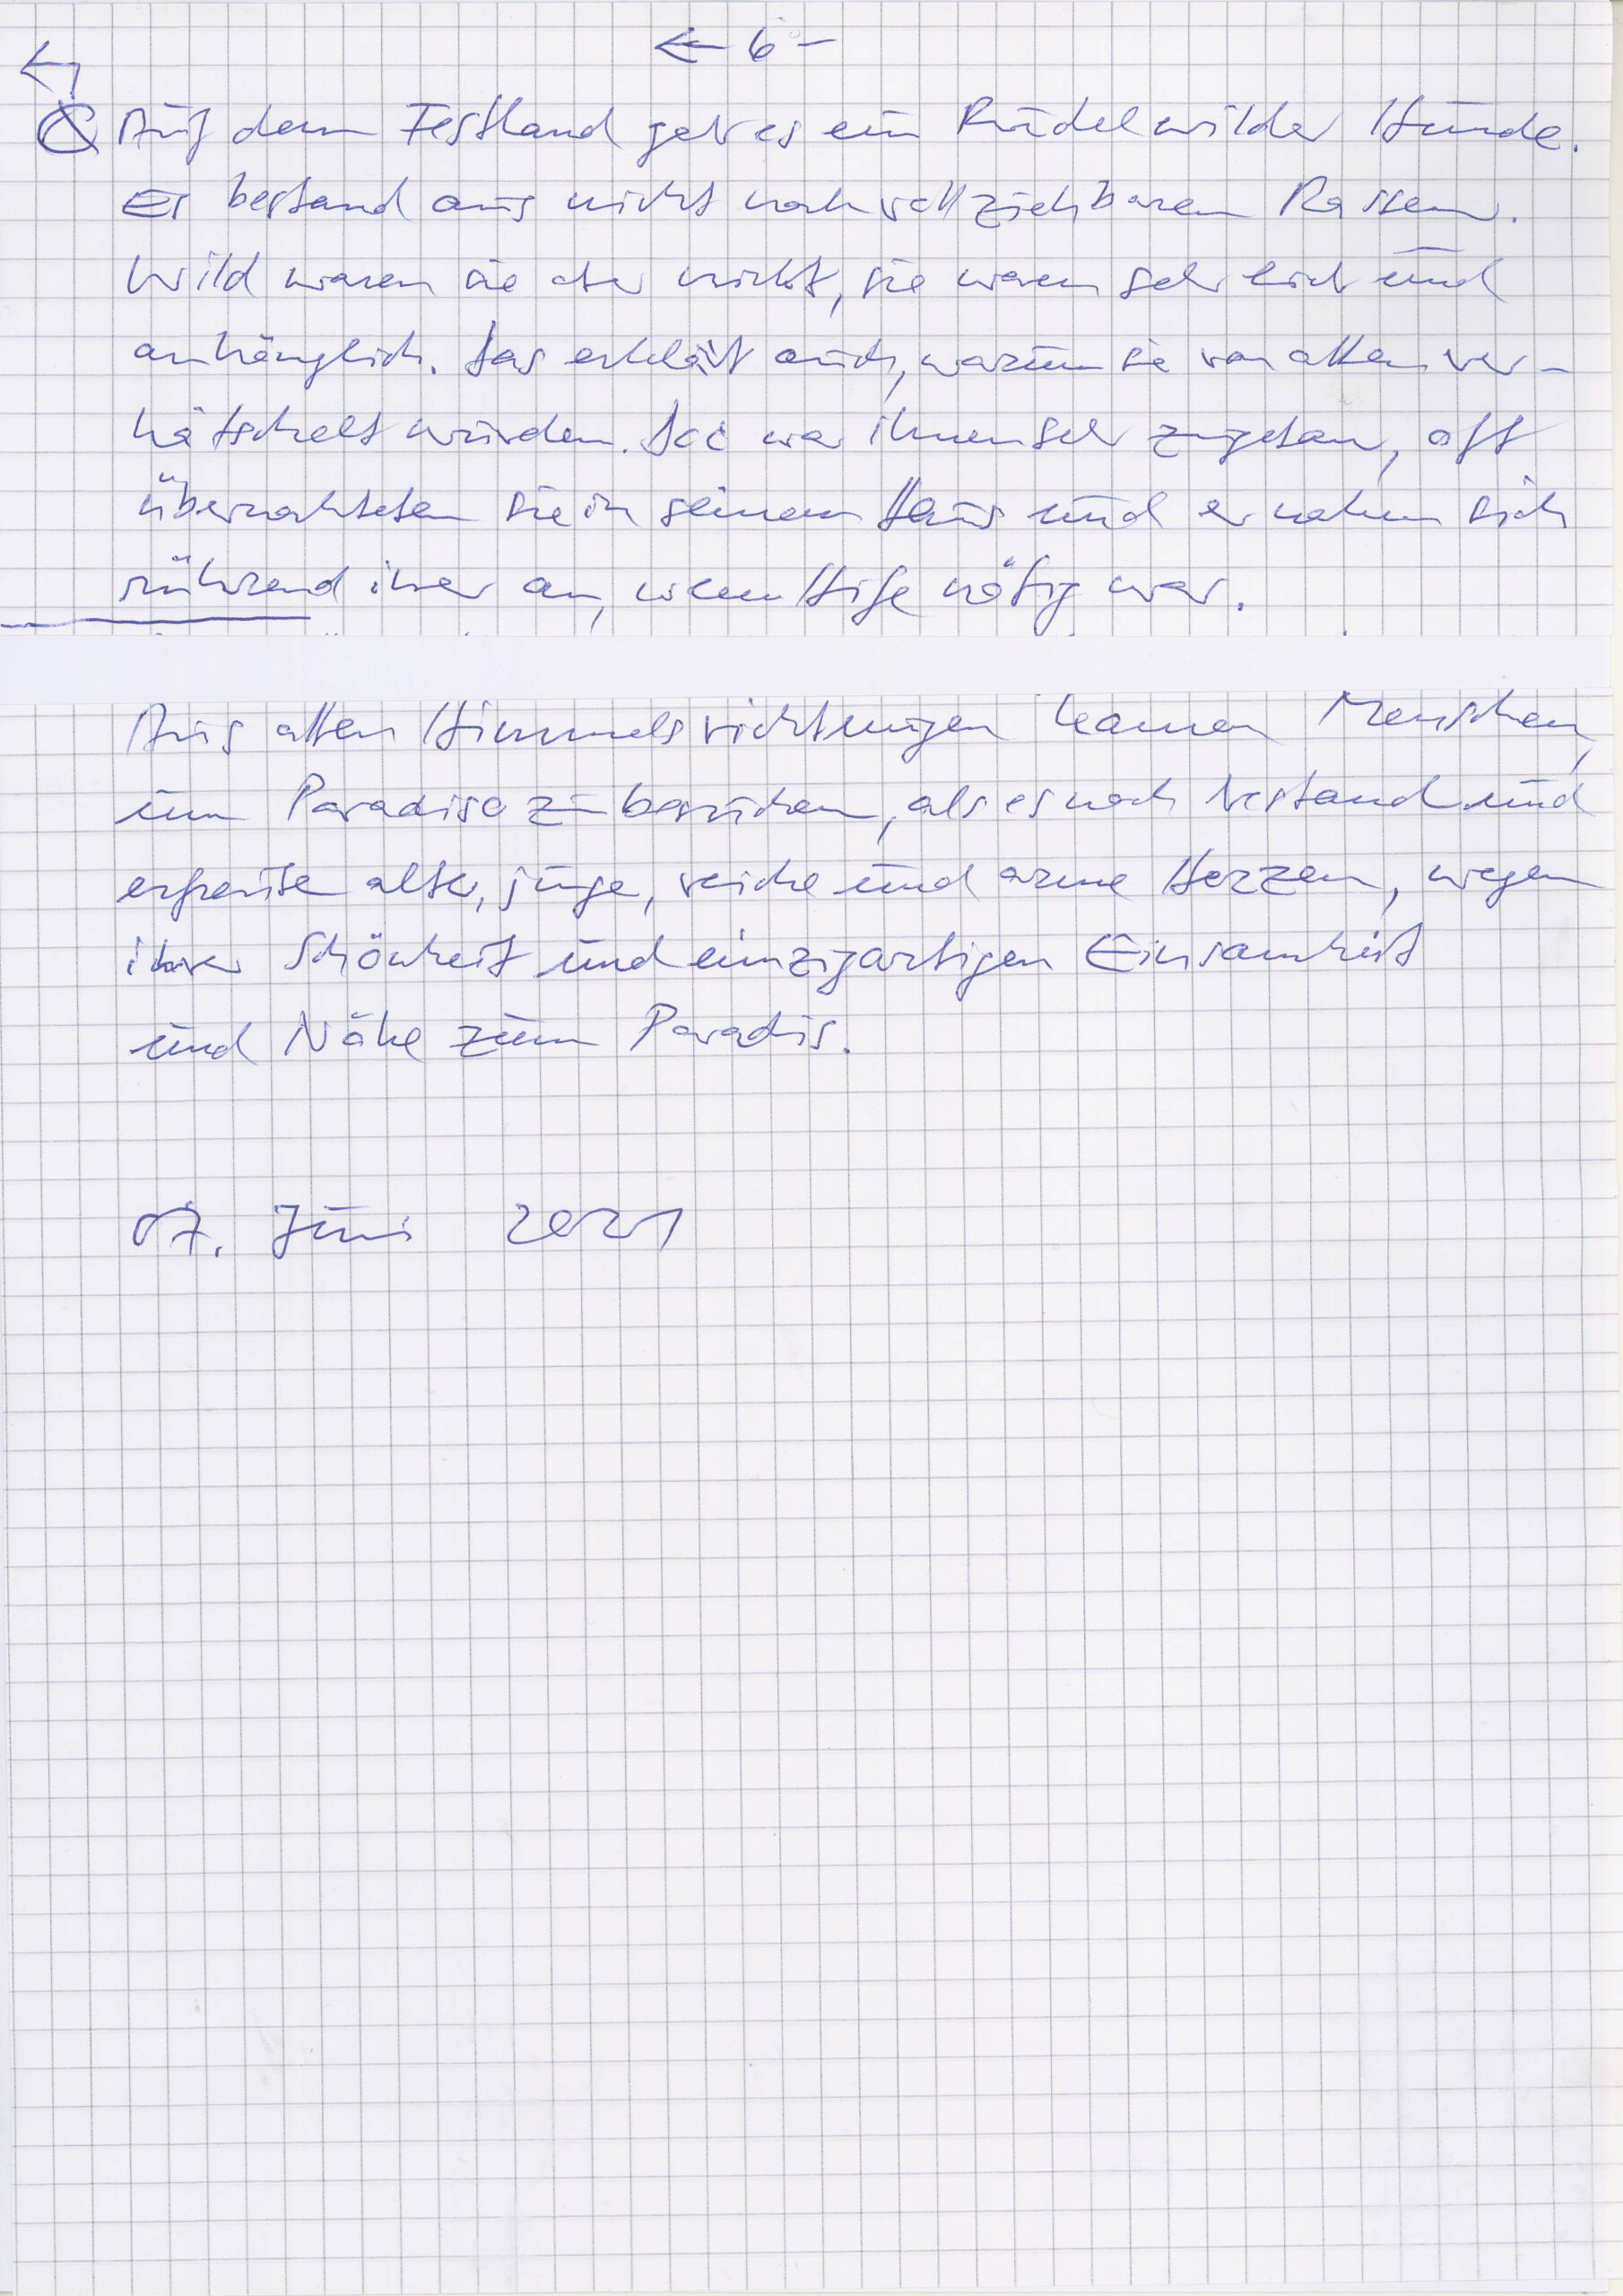 ← 6 –
Auf dem Festland gab es ein Rudel wilder Hunde.
Es bestand aus nicht nachvollziehbaren Rassen.
Wild waren sie aber nicht, sie waren sehr lieb und
anhänglich. Das erklärt auch, warum sie von allen ver-
hätschelt wurden. Doc war ihnen sehr zugetan, oft
übernachteten sie in seinem Haus und er nahm sich
rührend ihrer an, wenn Hilfe nötig war.
Aus allen Himmelsrichtungen kamen Menschen,
um Paradiso zu besuchen, als es noch bestand und
erfreute alte, junge, reiche und arme Herzen, wegen
ihrer Schönheit und einzigartigen Einsamkeit
und Nähe zum Paradis.
07. Juni 2021